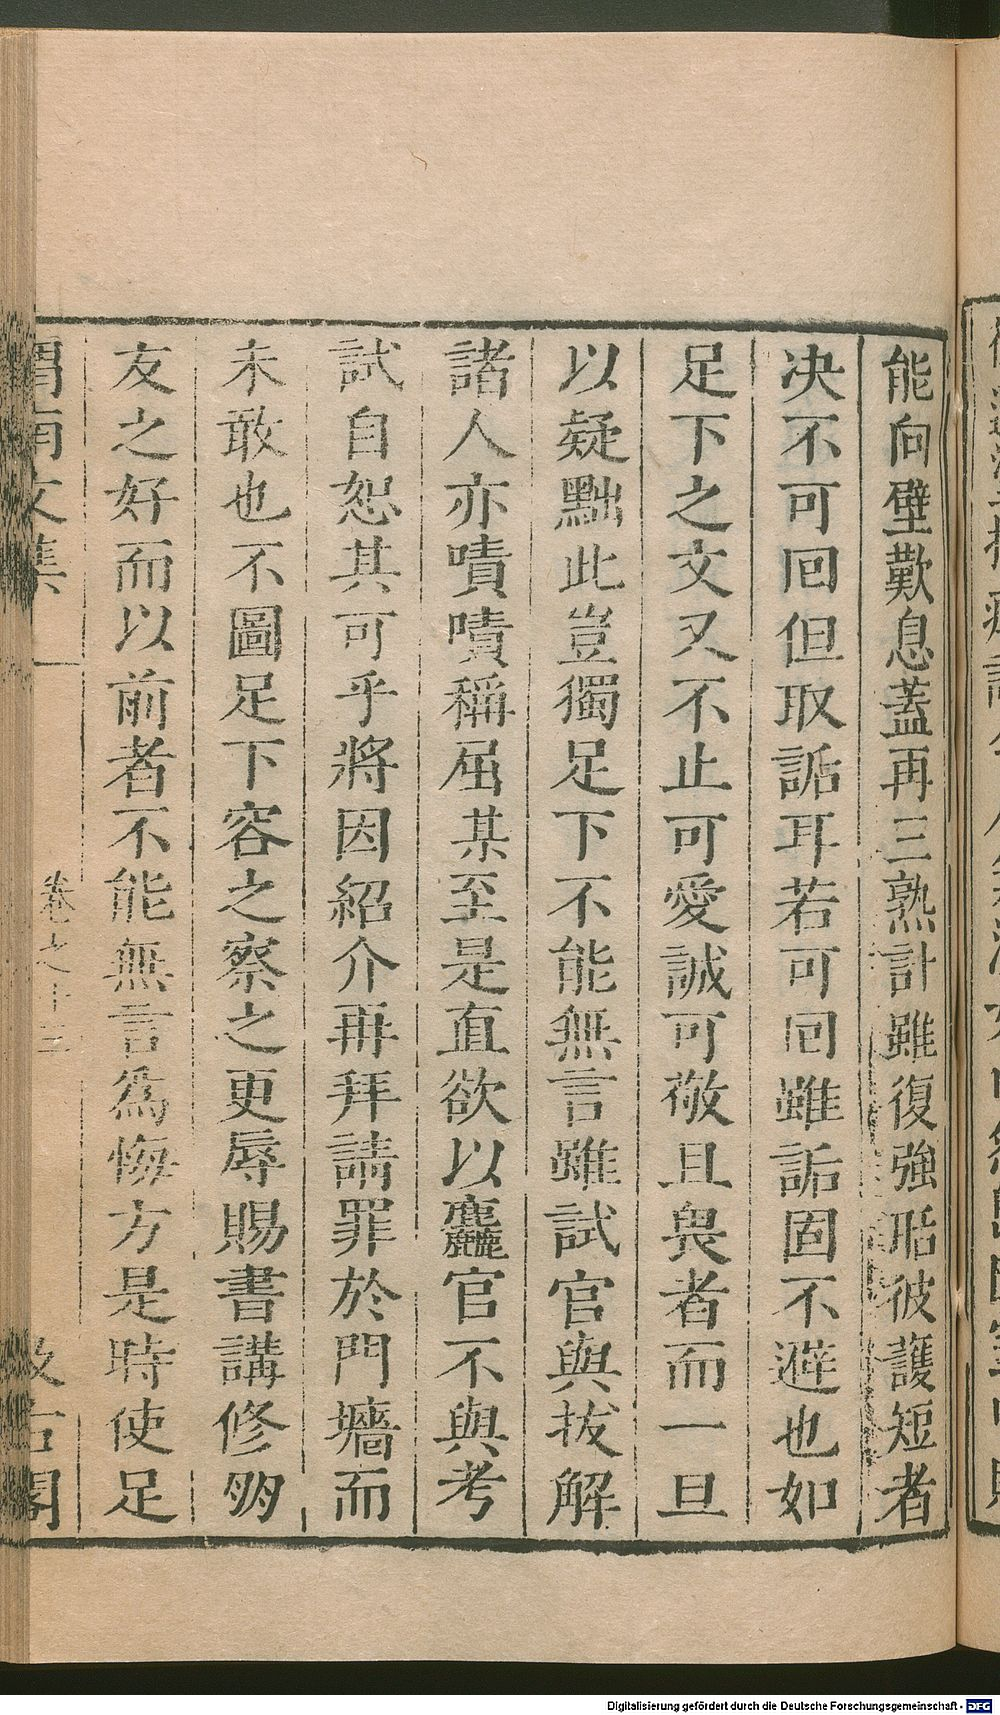 能向壁歎息蓋再三熟計雖復強聒彼護短者
決不可回但取詬耳若可回雖詬固不避也如
足下之文又不止可愛誠可敬且畏者而一旦
以疑黜此豈獨足下不能無言雖試官與拔解
諸人亦嘖嘖稱屈某至是直欲以麤官不與考
試自恕其可乎將因紹介再拜請罪於門墻而
未敢也不圖足下容之察之更辱賜書講修朋
友之好而以前者不能無言為悔方是時使足
渭南文集 卷之十三 汲古閣
Digitalisierung gefördert durch die Deutsche Forschungsgemeinschaft - DFG